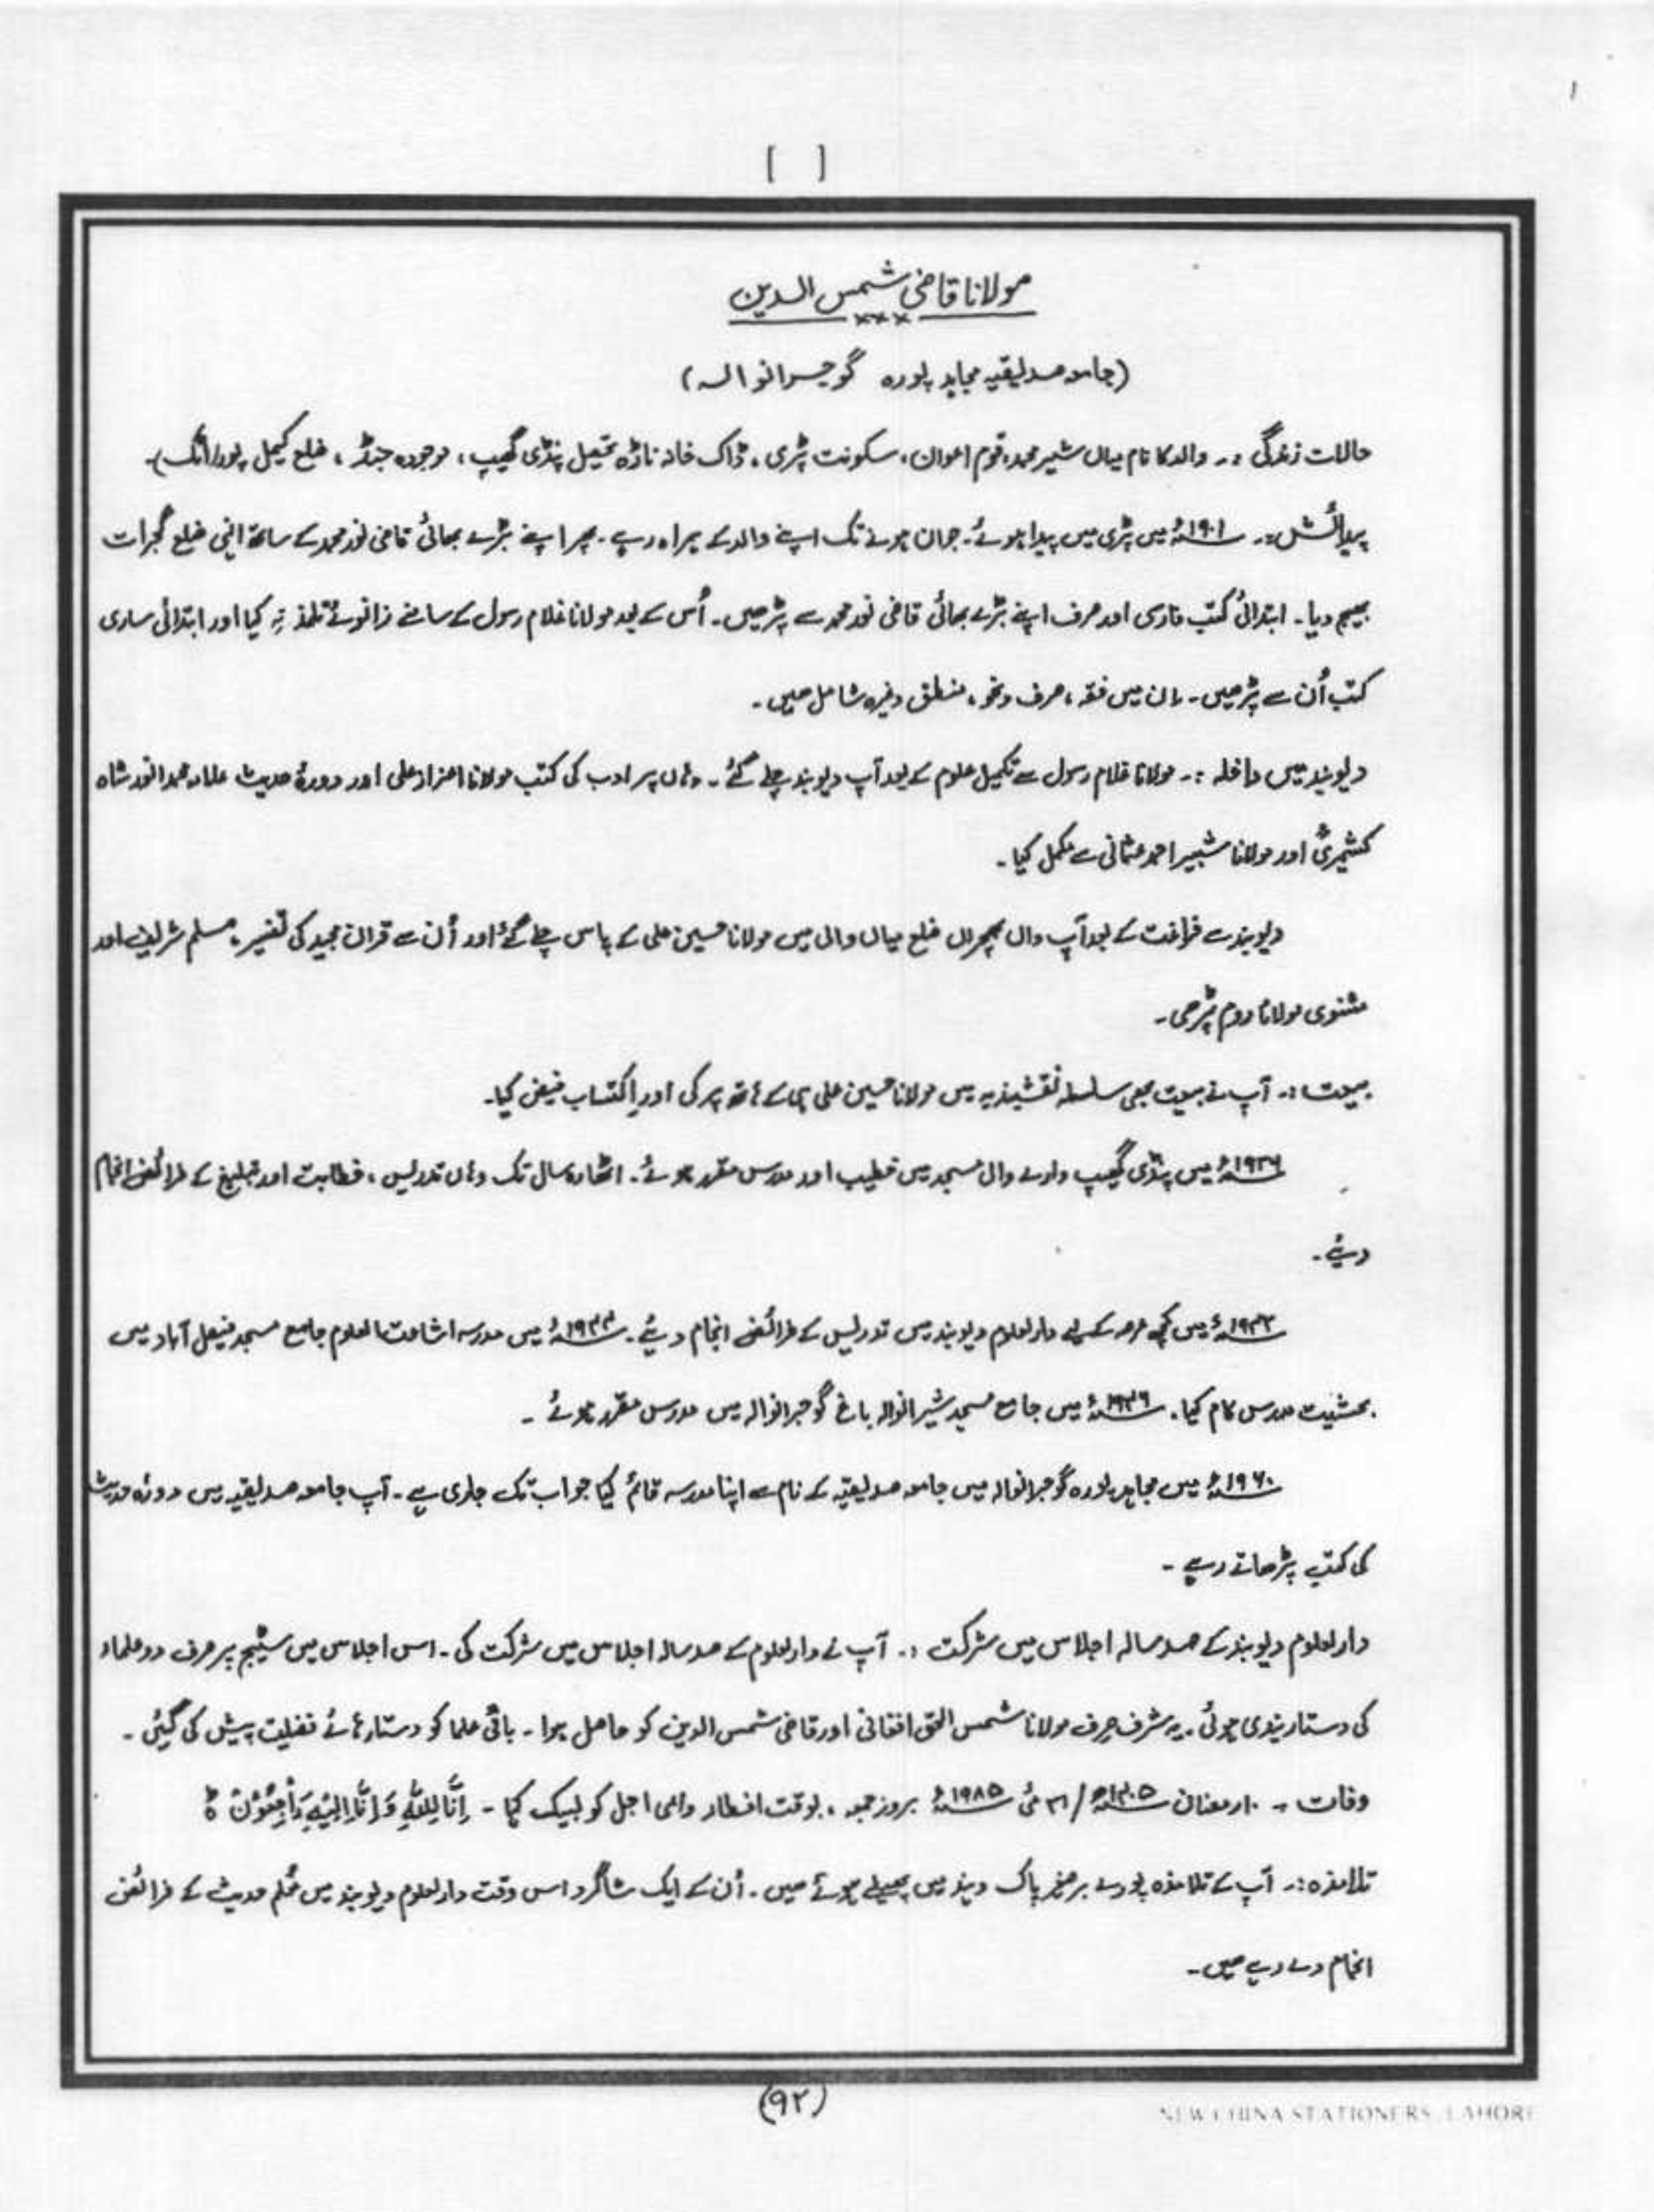 [ ]
مولانا قاضی شمس الدین
×××
(جامعہ صدیقیہ مجاہد پورہ گوجرانوالہ)
حالات زندگی :۔ والد کا نام میاں شیر محمد، قوم اعوان، سکونت پڑی، ڈاک خانہ ناڑہ تحصیل پنڈی گھیب، موجودہ جنڈ، ضلع کیمل پور (اٹک)۔
پیدائش:۔ ۱۹۰۱ء میں پڑی میں پیدا ہوئے۔ جوان ہونے تک اپنے والد کے ہمراہ رہے۔ پھر اپنے بڑے بھائی قاضی نور محمد کے ساتھ انّی ضلع گجرات
بھیج دیا۔ ابتدائی کتب فارسی اور صرف اپنے بڑے بھائی قاضی نور محمد سے پڑھیں۔ اُس کے بعد مولانا غلام رسول کے سامنے زانوئے تلمذ تہ کیا اور ابتدائی ساری
کتب اُن سے پڑھیں۔ ان میں فقہ، صرف ونحو، منطق وغیرہ شامل ہیں۔
دیوبند میں داخلہ :۔ مولانا غلام رسول سے تکمیل علوم کے بعد آپ دیوبند چلے گئے۔ وہاں پر ادب کی کتب مولانا اعزاز علی اور دورۂ حدیث علامہ محمد انور شاہ
کشمیریؒ اور مولانا شبیر احمد عثمانی سے مکمل کیا۔
دیوبند سے فراغت کے بعد آپ واں بھچراں ضلع میاں والی میں مولانا حسین علی کے پاس چلے گئے اور اُن سے قرآن مجید کی تفسیر، مسلم شریف اور
مثنوی مولانا روم پڑھی۔
بیعت :۔ آپ نے بیعت بھی سلسلہ نقشبندیہ میں مولانا حسین علی ہی کے ہاتھ پر کی اور اکتساب فیض کیا۔
میں پنڈی گھیب والی مسجد میں خطیب اور مدرس مقرر ہوئے۔ اٹھارہ سال تک وہاں تدریس، خطابت اور تبلیغ کے فرائض انجام
دیئے۔
میں کچھ عرصہ کے لیے دارلعلوم دیوبند میں تدریس کے فرائض انجام دیئے۔ میں مدرسہ اشاعت العلوم جامع مسجد فیصل آباد میں
بحیثیت مدرس کام کیا۔ میں جامع مسجد شیرانوالہ باغ گوجرانوالہ میں مدرس مقرر ہوئے۔
۱۹۶۰ء میں مجاہد پورہ گوجرانوالہ میں جامعہ صدیقیہ کے نام سے اپنا مدرسہ قائم کیا جو اب تک جاری ہے۔ آپ جامعہ صدیقیہ میں دورۂ حدیث
کی کتب پڑھاتے رہے۔
دارلعلوم دیوبند کے صد سالہ اجلاس میں شرکت :۔ آپ نے دارلعلوم کے صد سالہ اجلاس میں شرکت کی۔ اس اجلاس میں سٹیج پر صرف دو علماء
کی دستار بندی ہوئی۔ یہ شرف صرف مولانا شمس الحق افغانی اور قاضی شمس الدین کو حاصل ہوا۔ باقی علما کو دستار ہائے فضیلت پیش کی گئیں۔
وفات :۔ ۱۰ رمضان ۱۴۰۵ھ / ۳۱ مئی ۱۹۸۵ء بروز جمعہ، بوقت افطار داعی اجل کو لبیک کہا۔ اِنَّا لِلّٰهِ وَ اِنَّا اِلَیْهِ رَاجِعُوْنَ ط
تلامذہ :۔ آپ کے تلامذہ پورے برصغیر پاک و ہند میں پھیلے ہوئے ہیں۔ اُن کے ایک شاگرد اس وقت دارلعلوم دیوبند میں مُعلم حدیث کے فرائض
انجام دے رہے ہیں۔
(۹۲)
NEW CHINA STATIONERS LAHORE